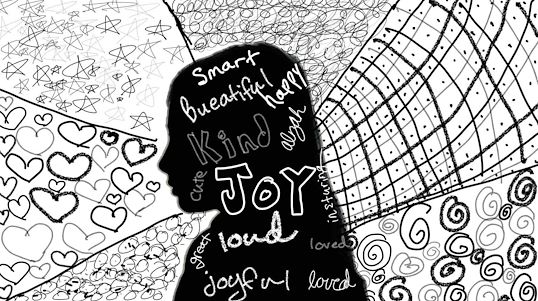 Smart
Bueatiful
happy
Kind
alyah
cute
JOY
great
loud
loved
joyful
loved